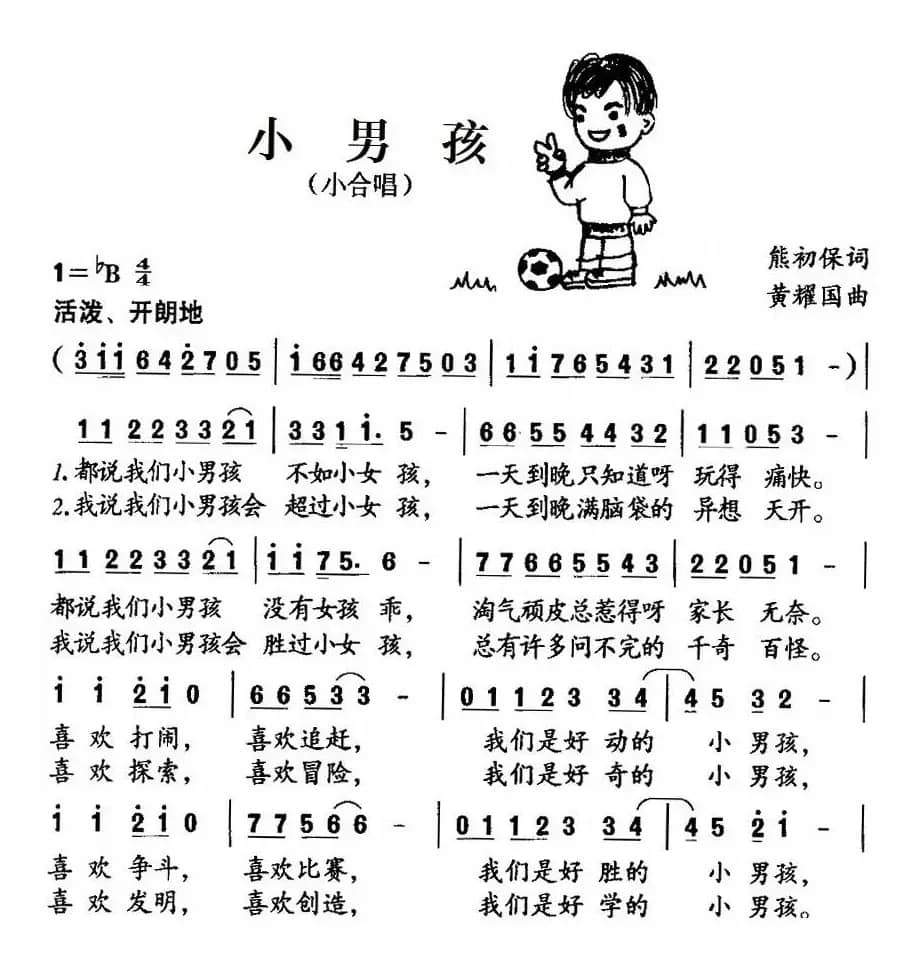 小男孩
（小合唱）
1=♭B 4/4
熊初保词
活泼、开朗地
黄耀国曲
(3̇1̇1̇ 64 2̇705 | 1̇66427503 | 11̇765431 | 22051 -)|
11 22 33 2̇1̇ | 33 11̇. 5 - | 66 55 44 32 | 11053 - |
1.都说我们小男孩 不如小女 孩， 一天到晚只知道呀 玩得 痛快。
2.我说我们小男孩会 超过小女 孩， 一天到晚满脑袋的 异想 天开。
11 22 33 2̇1̇ | 1̇ 1̇ 75. 6 - | 77665543 | 22051 - |
都说我们小男孩 没有女孩 乖， 淘气顽皮总惹得呀 家长 无奈。
我说我们小男孩会 胜过小女 孩， 总有许多问不完的 千奇 百怪。
1̇ 1̇ 2̇1̇0 | 66533 - | 01123 34 | 45 32 - |
喜 欢 打闹， 喜欢追赶， 我们是好 动的 小 男孩，
喜 欢 探索， 喜欢冒险， 我们是好 奇的 小 男孩，
1̇ 1̇ 2̇1̇0 | 77566 - | 01123 34 | 45 2̇1̇ - |
喜 欢 争斗， 喜欢比赛， 我们是好 胜的 小 男孩，
喜 欢 发明， 喜欢创造， 我们是好 学的 小 男孩。